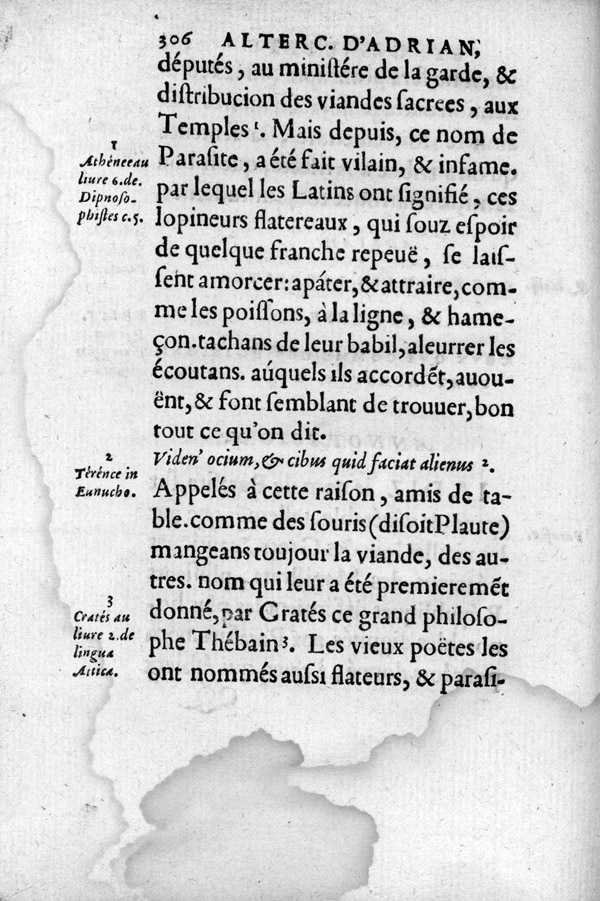 306 ALTERC. D'ADRIAN,
députés, au miniſtére de la garde, &
diſtribucion des viandes ſacrees, aux
Temples¹. Mais depuis, ce nom de
Paraſite, a été fait vilain, & infame.
par lequel les Latins ont ſignifié, ces
lopineurs flatereaux, qui ſouz eſpoir
de quelque franche repeuë, ſe laiſ-
ſent amorcer: apáter, & attraire, com-
me les poiſſons, à la ligne, & hame-
çon. tachans de leur babil, aleurrer les
écoutans. aúquels ils accordẽt, auou-
ënt, & font ſemblant de trouuer, bon
tout ce qu'on dit.
Viden' ocium, & cibus quid faciat alienus ².
Appelés à cette raiſon, amis de ta-
ble. comme des ſouris (diſoit Plaute)
mangeans toujour la viande, des au-
tres. nom qui leur a été premieremẽt
donné, par Cratés ce grand philoſo-
phe Thébain³. Les vieux poëtes les
ont nommés auſsi flateurs, & paraſi-
1
Athénee au
liure 6. de.
Dipnoſo-
phiſtes c. 5.
2
Térénce in
Eunucho.
3
Cratés au
liure 2. de
lingua
Attica.